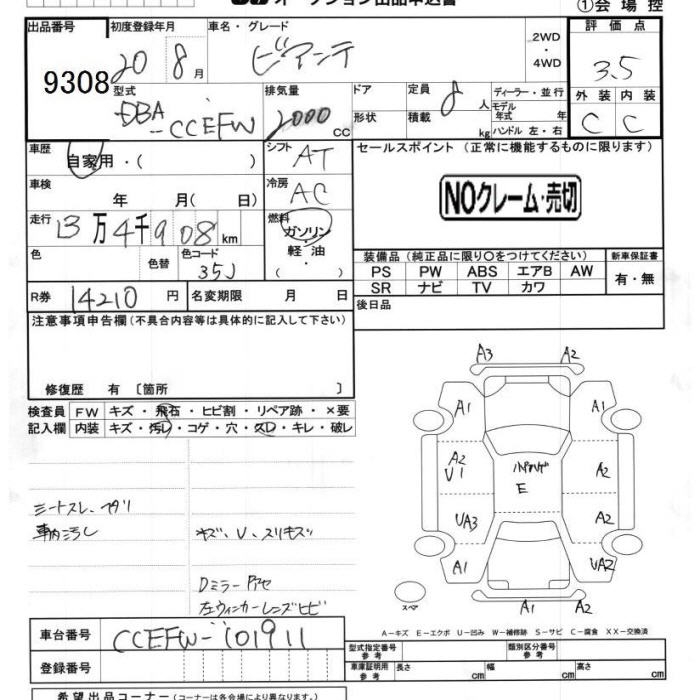 ①会場控
出品番号 初度登録年月 車名・グレード 2WD 評価点
9308 20 8月 ビアンテ 4WD 3.5
型式 排気量 ドア 定員 ディーラー・並行 外装 内装
DBA-CCEFW 2000cc 8人 モデル年式 年 C C
形状 積載 kg ハンドル 左・右
車歴 シフト セールスポイント (正常に機能するものに限ります)
自家用・( ) AT
車検 冷房 NOクレーム・売切
年 月( 日) AC
走行 燃料
13万4千908km ガソリン・
色 色替 色コード 軽・油 装備品(純正品に限り○をつけてください) 新車保証書
35J ( ) PS PW ABS エアB AW 有・無
R券 14210円 名変期限 月 日 SR ナビ TV カワ
注意事項申告欄(不具合内容等は具体的に記入して下さい) 後日品
修復歴 有 〔箇所 〕
検査員 FW キズ・飛石・ヒビ割・リペア跡・×要
記入欄 内装 キズ・汚レ・コゲ・穴・欠レ・キレ・破レ
A3 A2
A1 A1
A2 A2
V1
E
UA3 A2
A1 UA2
A1 A2
スペア
キズ、U、スリキズ
Dミラー
左ウィンカーレンズヒビ
A−キズ E−エクボ U−凹み W−補修跡 S−サビ C−腐食 XX−交換済
車台番号 CCEFW-101911
登録番号
型式指定番号 参考 類別区分番号 参考
車庫証明用 参考 長さ cm 幅 cm 高さ cm
希望出品コーナー(コーナーは各会場により異なります。)